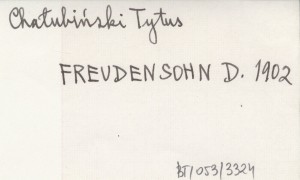 Chałubiński Tytus
FREUDENSOHN D. 1902
BJ/053/3324